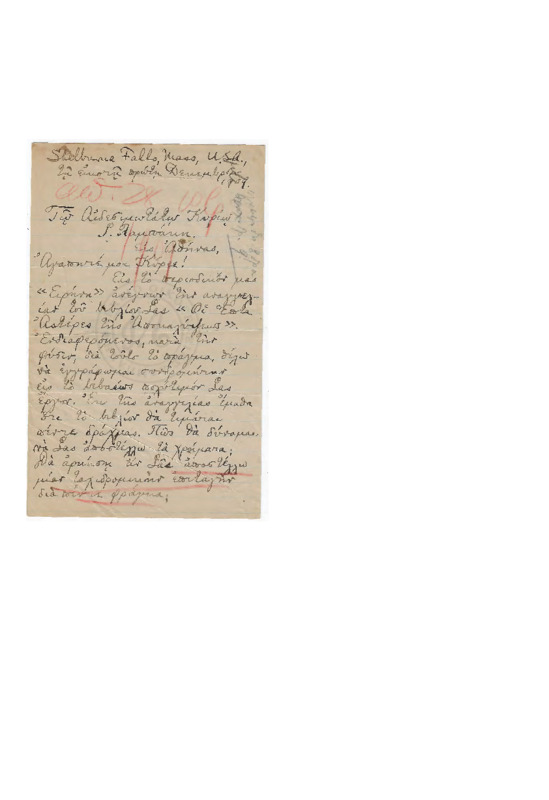 Shelburne Falls, Mass, U.S.A.,
τῇ εἰκοστῇ πρώτῃ Δεκεμβρίου
Τῷ Αἰδεσιμωτάτῳ Κυρίῳ
Γ. Λαμπάκῃ.
Εἰς Ἀθήνας,
Ἀγαπητέ μοι Κύριε!
Εἰς τὸ περιοδικόν μας
«Εἰρήνη» ἀνέγνων τὴν ἀναγγελ-
ίαν τοῦ βιβλίου Σας «Οἱ Ἑπτὰ
Ἀστέρες τῆς Ἀποκαλύψεως».
Ἐνδιαφερόμενος, κατὰ τὴν
φύσιν, διὰ τοῦτο τὸ πρᾶγμα, θέλω
νὰ ἐγγράφωμαι συνδρομητὴν
εἰς τὸ βεβαίως πολύτιμόν Σας
ἔργον. Ἐκ τῆς ἀναγγελίας ἔμαθα
ὅτι τὸ βιβλίον θὰ τιμᾶται
πέντε δράχμας. Πῶς θὰ δύναμαι
νὰ Σᾶς ἀποστέλλω τὰ χρήματα;
Θὰ ἀρκήσῃ ἂν Σᾶς ἀποστέλλω
μίαν ταχιδρομικὴν ἐπιταγὴν
διὰ πέντε φράγκα;